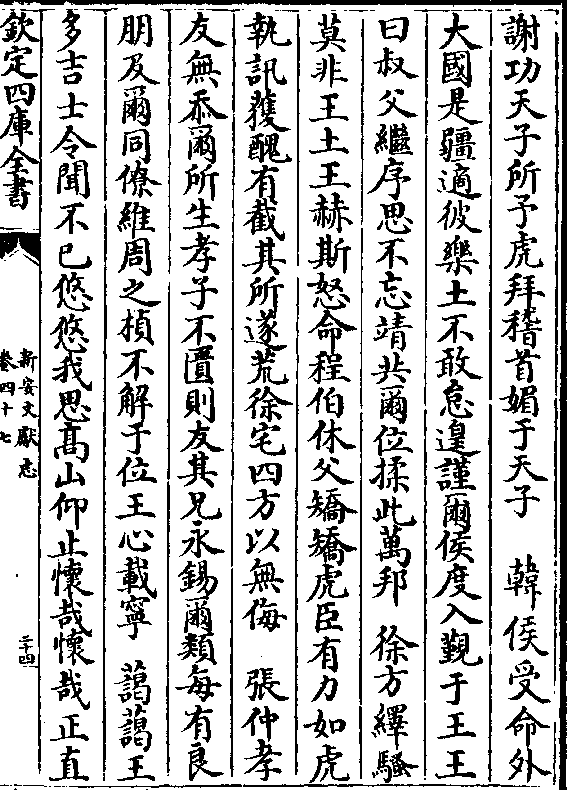 謝功天子所予虎拜稽首媚于天子　韓侯受命外
大國是疆適彼樂土不敢怠遑謹爾侯度入覲于王王
曰叔父繼序思不忘靖共爾位揉此萬邦　徐方繹騷
莫非王土王赫斯怒命程伯休父矯矯虎臣有力如虎
執訊獲醜有截其所遂荒徐宅四方以無侮　張仲孝
友無忝爾所生孝子不匱則友其兄永錫爾類每有良
朋及爾同僚維周之楨不解于位王心載寧　藹藹王
多吉士令聞不已悠悠我思高山仰止懷哉懷哉正直
欽定四庫全書
新安文獻志
卷四十七
二十四